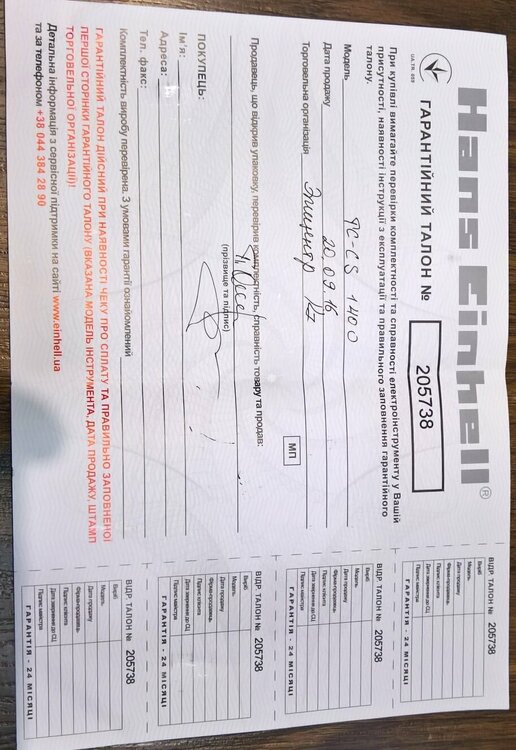 Hans Einhell®
UA.TR. 059
ГАРАНТІЙНИЙ ТАЛОН № 205738
При купівлі вимагайте перевірки комплектності та справності електроінструменту у Вашій
присутності, наявності інструкції з експлуатації та правильного заповнення гарантійного
талону.
Модель
1400
Дата продажу 20.09.16
Торговельна організація Эпицентр
МП
Продавець, що відкрив упаковку, перевірив комплектність, справність товару та продав:
(прізвище та підпис)
ПОКУПЕЦЬ:
Ім'я:
Адреса:
Тел. факс:
Комплектність виробу перевірена. З умовами гарантії ознайомлений
ГАРАНТІЙНИЙ ТАЛОН ДІЙСНИЙ ПРИ НАЯВНОСТІ ЧЕКУ ПРО СПЛАТУ ТА ПРАВИЛЬНО ЗАПОВНЕНОЇ
ПЕРШОЇ СТОРІНКИ ГАРАНТІЙНОГО ТАЛОНУ (ВКАЗАНА МОДЕЛЬ ІНСТРУМЕНТА, ДАТА ПРОДАЖУ, ШТАМП
ТОРГОВЕЛЬНОЇ ОРГАНІЗАЦІЇ)!
Детальна інформація з сервісної підтримки на сайті www.einhell.ua
та за телефоном +38 044 384 28 90
ВІДР. ТАЛОН № 205738
Виріб
Модель
Дата продажу
Фірма-продавець
Дата звернення до СЦ
Підпис клієнта
Підпис майстра
ГАРАНТІЯ - 24 МІСЯЦІ
ВІДР. ТАЛОН № 205738
Виріб
Модель
Дата продажу
Фірма-продавець
Підпис клієнта
Дата звернення до СЦ
Підпис майстра
ГАРАНТІЯ - 24 МІСЯЦІ
ВІДР. ТАЛОН № 205738
Виріб
Модель
Дата продажу
Фірма-продавець
Підпис клієнта
Дата звернення до СЦ
Підпис майстра
ГАРАНТІЯ - 24 МІСЯЦІ
ВІДР. ТАЛОН № 205738
Виріб
Модель
Дата продажу
Фірма-продавець
Підпис клієнта
Дата звернення до СЦ
Підпис майстра
ГАРАНТІЯ - 24 МІСЯЦІ